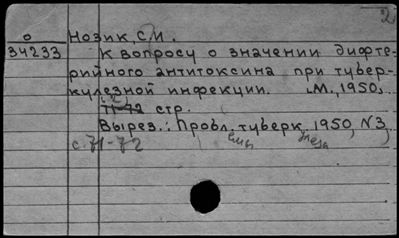 2
О Нозик, С.М.
34233 К вопросу о значении дифте-
рийного антитоксина при тубер-
кулезной инфекции. М., 1950.
(2)
71-72 стр.
Вырез.: Пробл. туберк., 1950, N3,
с. 71-72